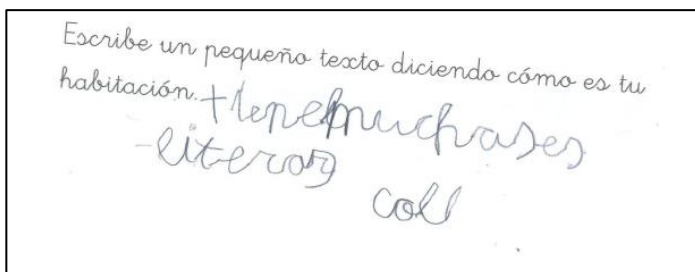 Escribe un pequeño texto diciendo cómo es tu
habitación. tienemuchases
-literas
coll